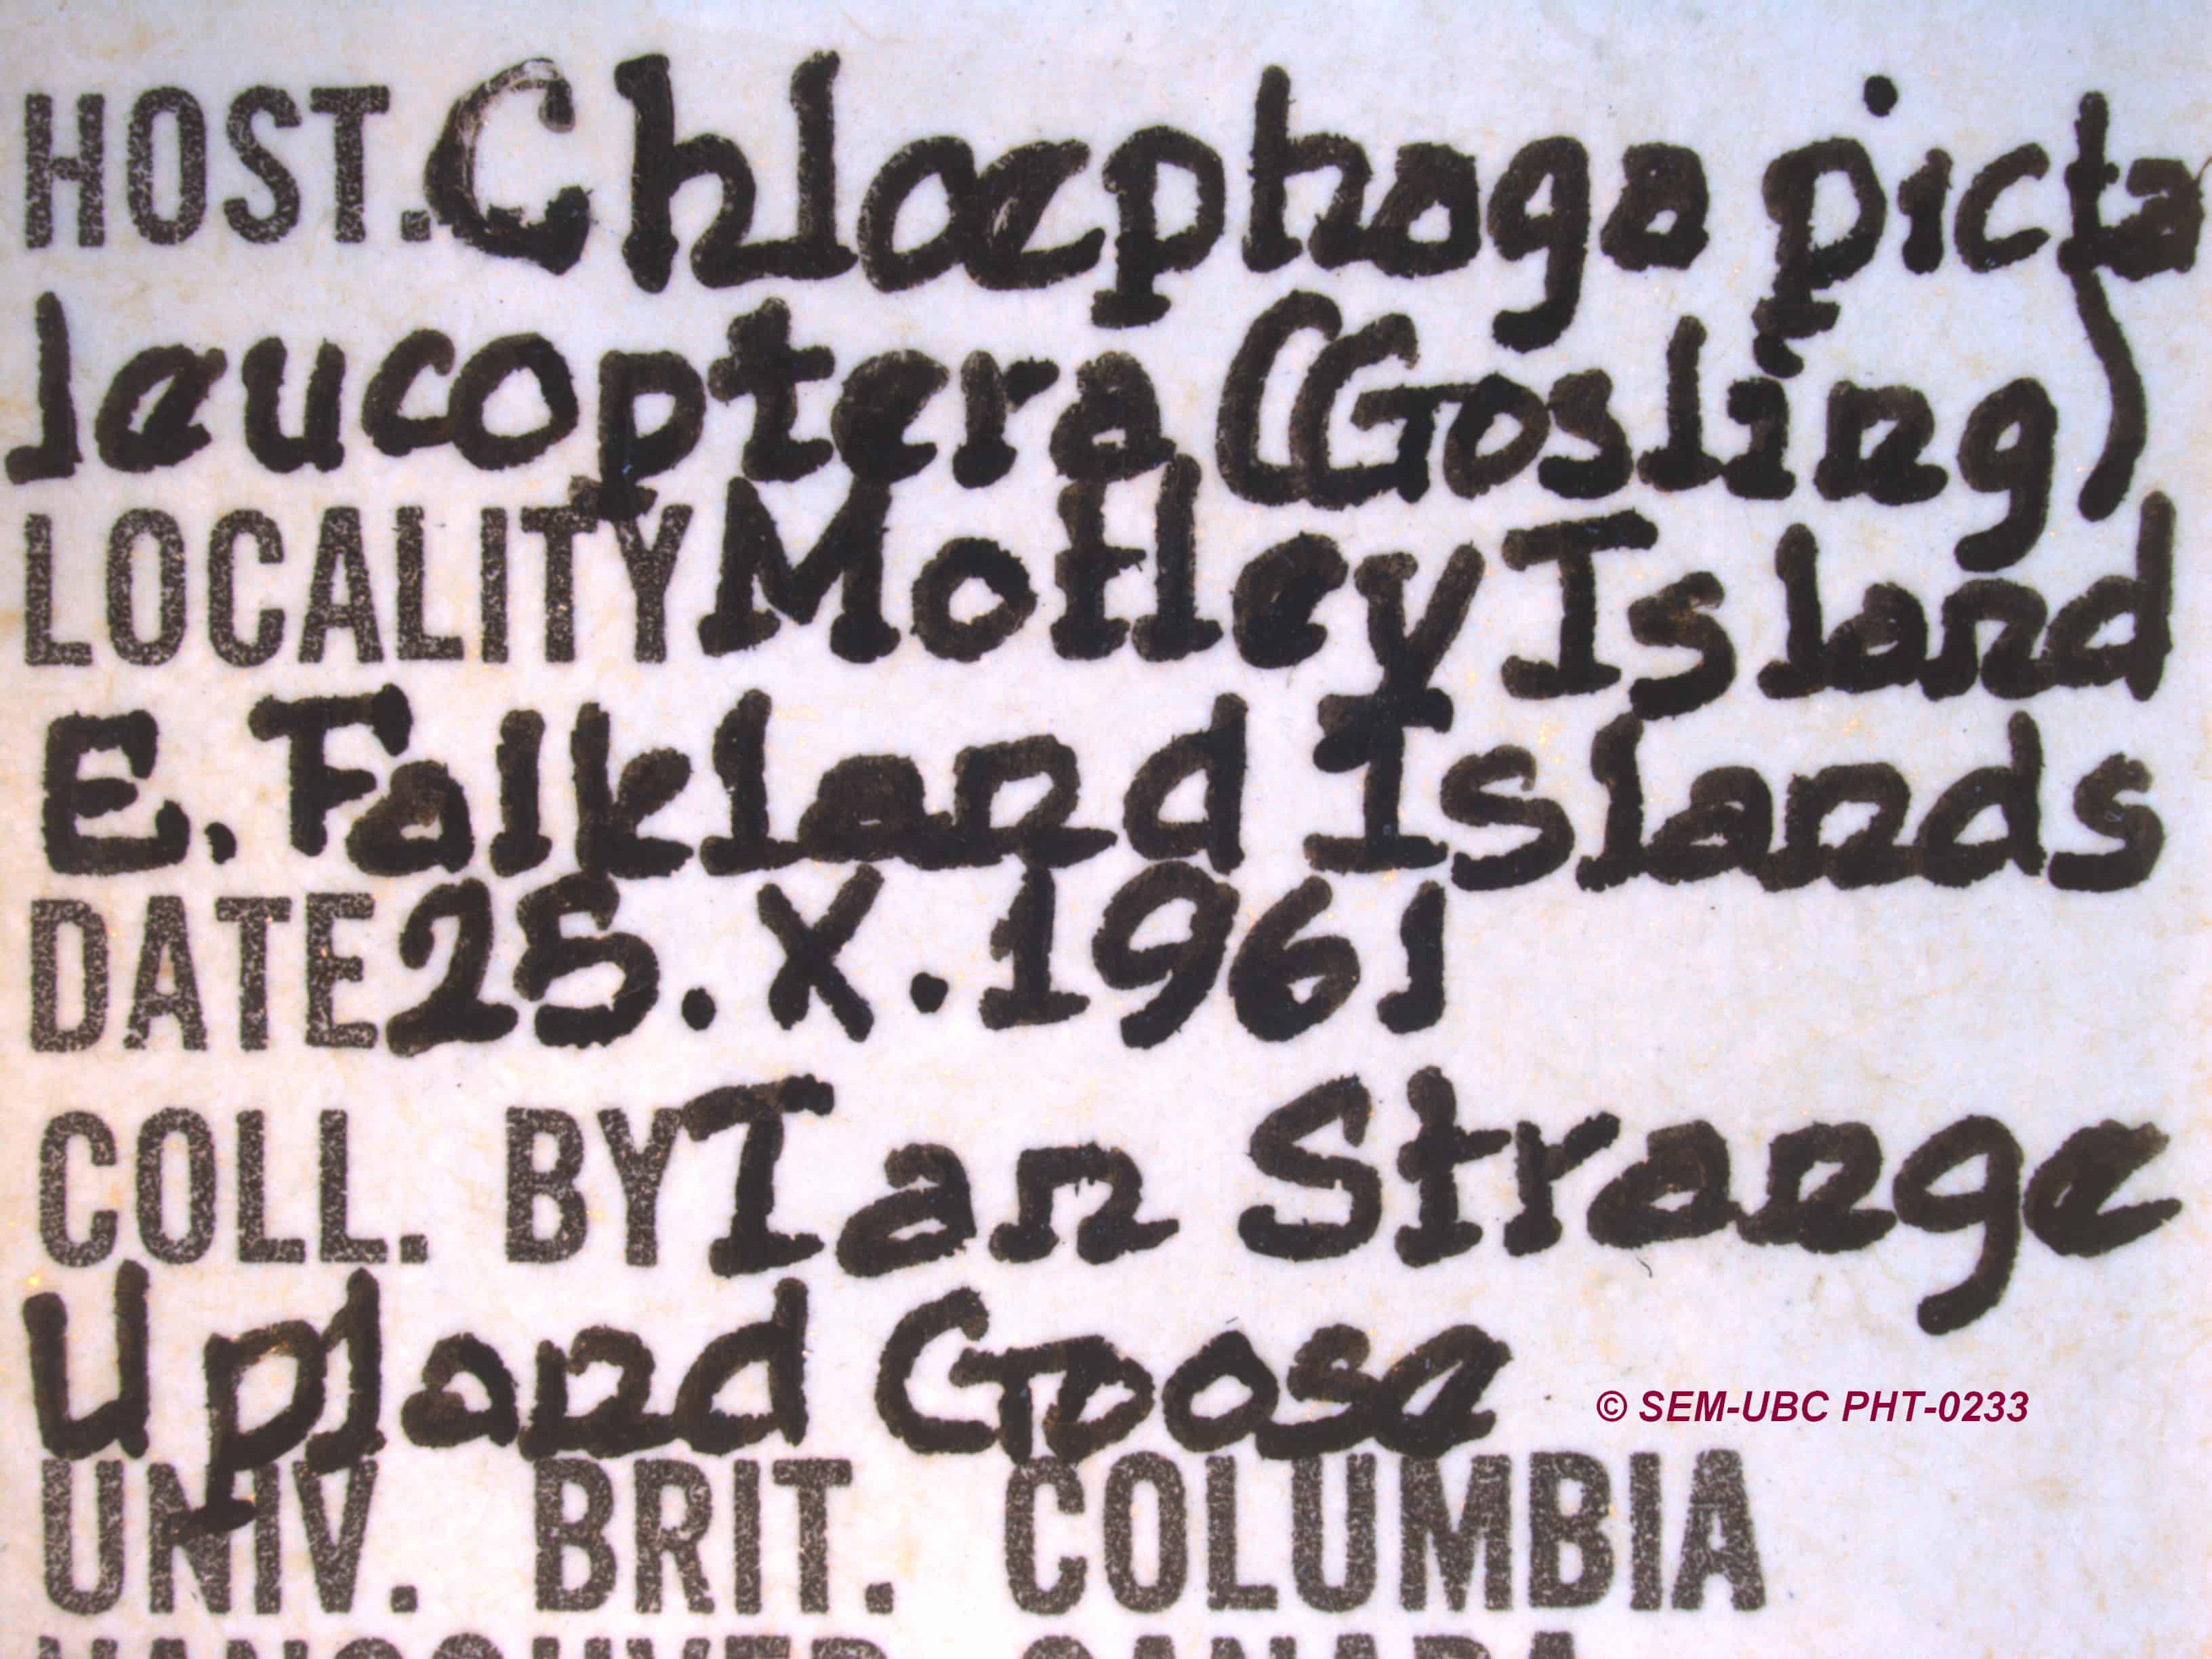 HOST. Chloephaga picta
leucoptera (Gosling)
LOCALITY Motley Island
E. Falkland Islands
DATE 25.X.1961
COLL. BY Ian Strange
Upland Goose
© SEM-UBC PHT-0233
UNIV. BRIT. COLUMBIA
VANCOUVER CANADA